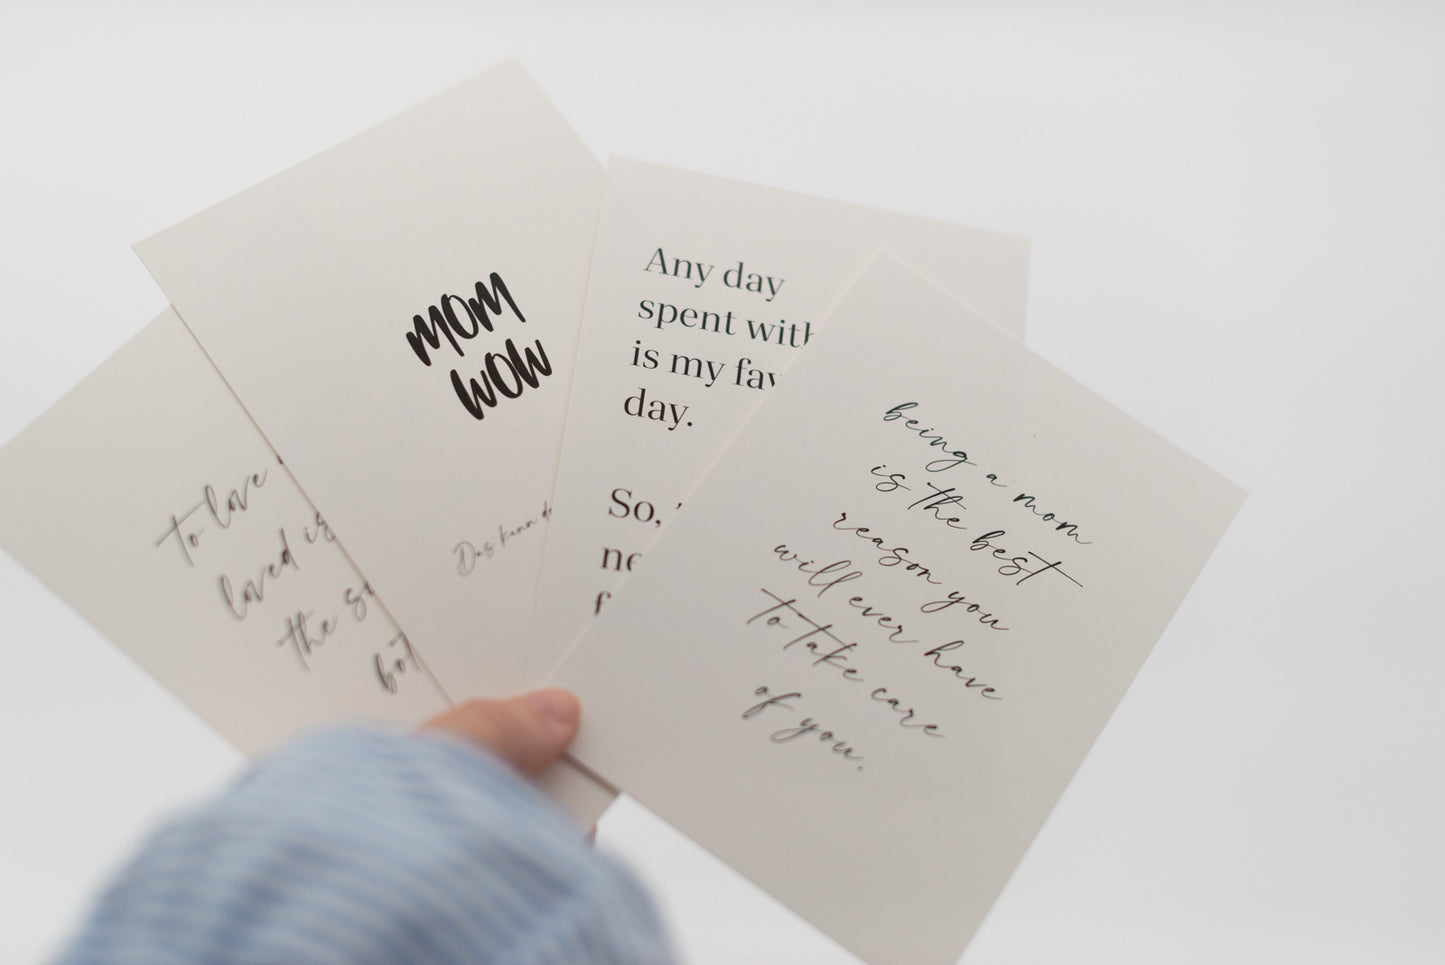 To love
loved is
the so
bot
MOM
WOW
Das kann
Any day
spent with
is my fav
day.
So,
ne
f
being a mom
is the best
reason you
will ever have
to take care
of you.